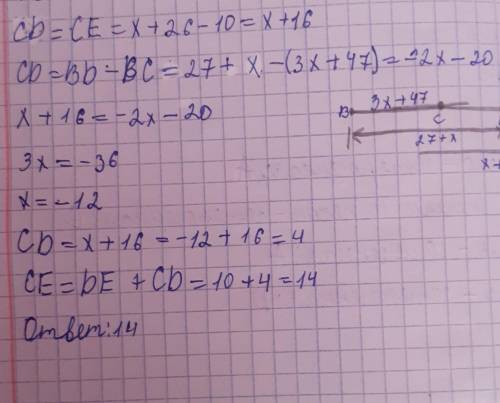 CD = CE = x + 26 - 10 = x + 16
CD = BD - BC = 27 + x - (3x + 47) = -2x - 20
x + 16 = -2x - 20
B 3x + 47
C
27 + x
3x = -36
x = -12
CD = x + 16 = -12 + 16 = 4
CE = DE + CD = 10 + 4 = 14
Ответ: 14